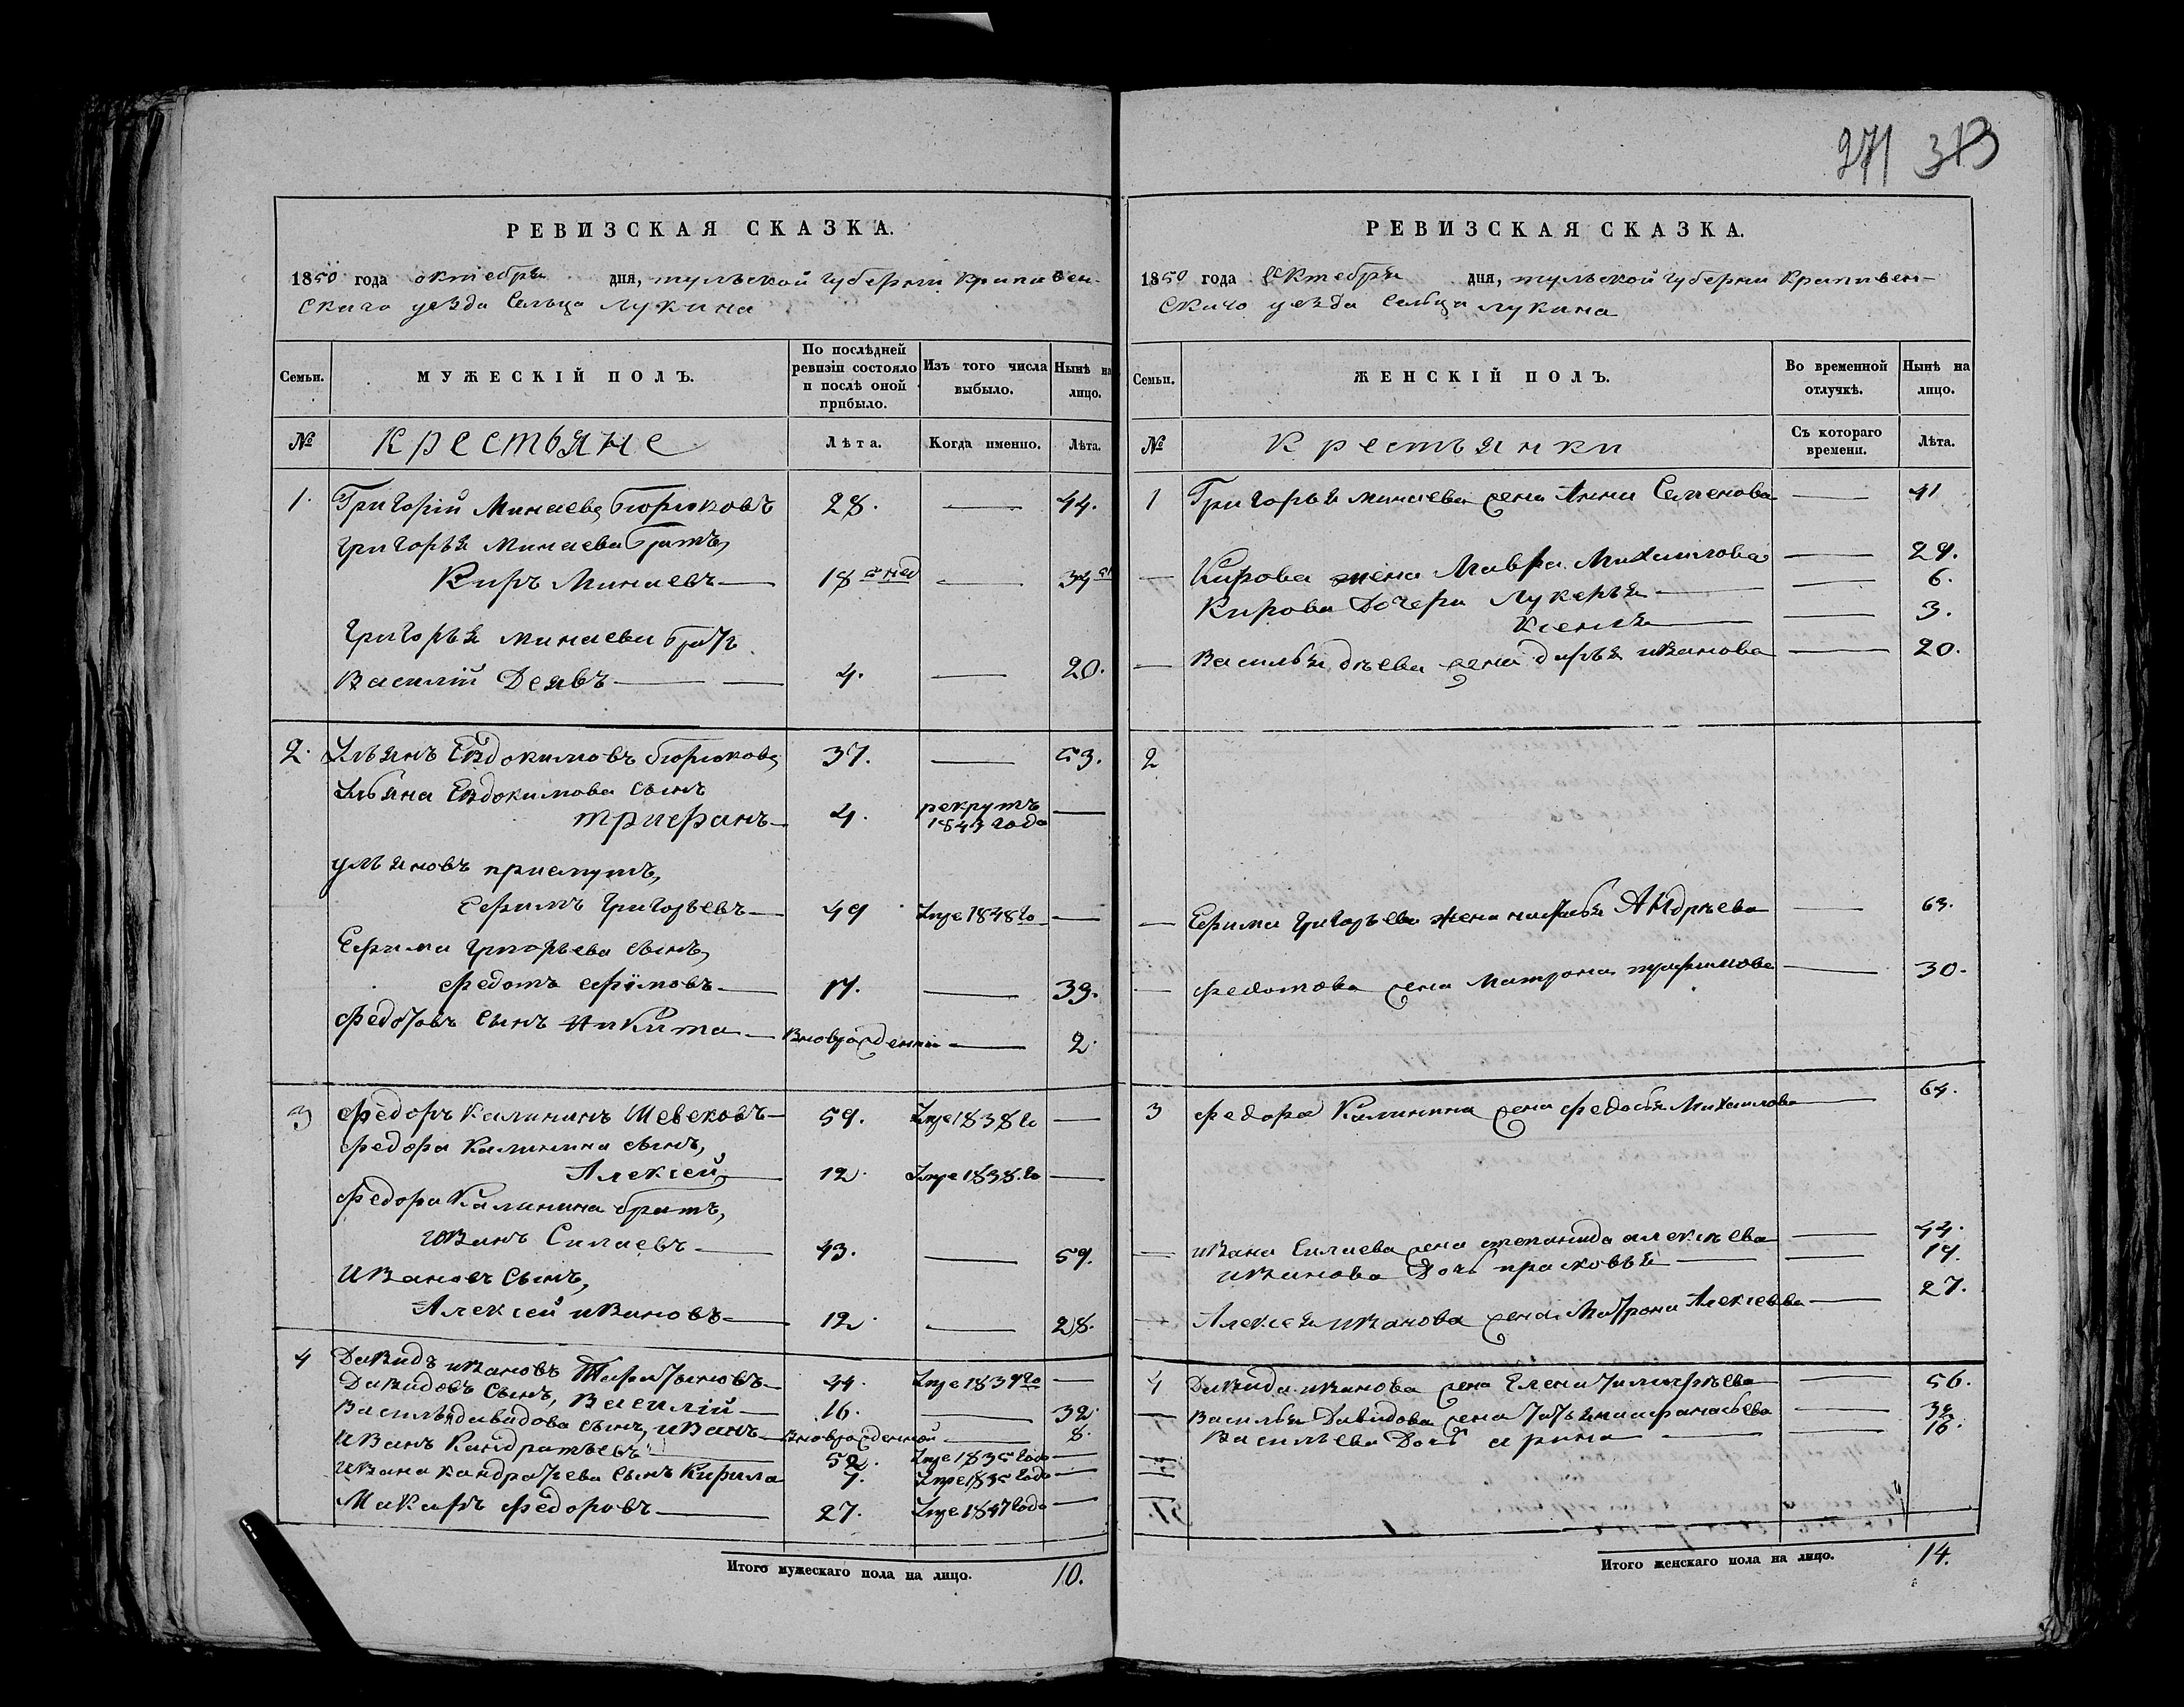 271 313
РЕВИЗСКАЯ СКАЗКА.
1850 года октебря дня, тульской губернии Крапивен-
скаго уезда Сельца лукина
Семьи. МУЖЕСКІЙ ПОЛЪ. По послѣдней ревизіи состояло и послѣ оной прибыло. Изъ того числа выбыло. Нынѣ на лицо.
№ крестьяне Лѣта. Когда именно. Лѣта.
1. Григорій Минаевъ Бирюковъ 28. — 44.
Григорья минаева братъ,
Киръ Минаевъ — 18 — 34
Григорья минаева братъ
Василій — 4. — 20.
2. Ульянъ Евдокимовъ бирюковъ 37. — 53.
Ульяна Евдокимова сынъ
трифанъ — 4. рекрутъ 1843 года —
ульяновъ приемышъ,
Ефимъ Григорьевъ — 49 Умре 1848 го —
Ефима григорьева сынъ,
федотъ ефимовъ — — 39.
федотовъ сынъ Никита — Вновьрожденный — 2.
3 федоръ калининъ — 59. Умре 1838 го —
федора калинина сынъ,
Алексей — 12. Умре 1838. го —
федора Калинина братъ,
иванъ Силаевъ — 43. — 59.
Ивановъ сынъ,
Алексей ивановъ — 12. — 28.
4 Давидъ ивановъ — 44. Умре го —
Давидовъ сынъ, Василій — 16. — 32.
Василья давидова сынъ, иванъ — Вновьрожденный — 8.
Иванъ Кандратьевъ — 52. Умре 1835 года —
Ивана кандратьева сынъ Кирила 7. Умре 1835 года —
Макаръ федоровъ — 27. Умре 1847 года —
Итого мужескаго пола на лицо. 10.
РЕВИЗСКАЯ СКАЗКА.
1850 года Октебря дня, тульской губернии Крапивен-
скаго уезда сельца лукина
Семьи. ЖЕНСКІЙ ПОЛЪ. Во временной отлучкѣ. Нынѣ на лицо.
№ крестьянки Съ котораго времени. Лѣта.
1 Григорья минаева жена Анна Семенова — 41
— Кирова жена Мавра Михаилова — 29.
Кирова дочери лукерья — 6.
— 3.
— Василья жена дарья иванова — 20.
2
— Ефима григорьева жена Андрѣева — 63.
— федотова жена Матрона — 30.
3 федора Калинина жена федосья Михаилова — 64.
— ивана Силаева жена степанида алексѣева — 44.
иванова дочь прасковья — 14.
— Алексея иванова жена Матрона Алексеева — 27.
4 Давида иванова жена Елена — 56.
— Василья Давидова жена татьяна афанасьева —
Васильева дочь арина —
Итого женскаго пола на лицо. 14.